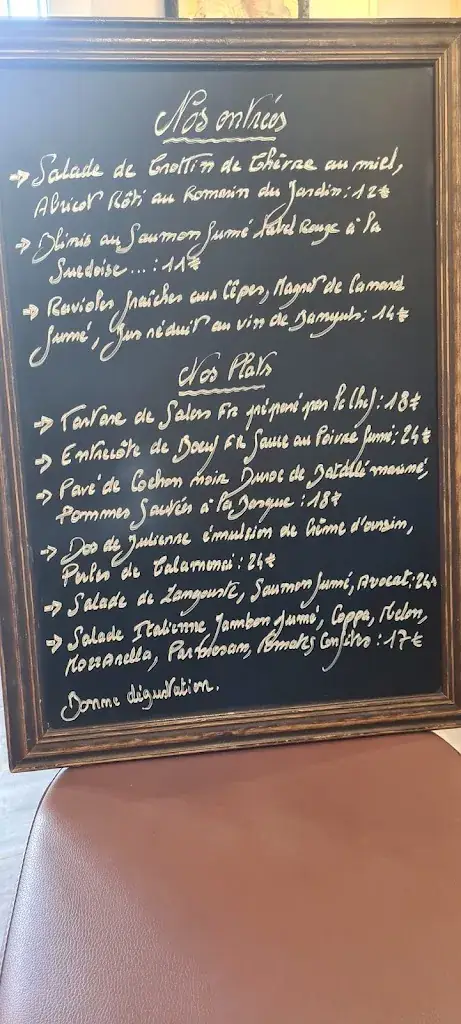 Nos entrées
→ Salade de Crottin de Chèvre au miel,
Abricot Rôti au Romarin du Jardin : 12€
→ Blinis au Saumon fumé Label Rouge à la
Suedoise ... : 11€
→ Ravioles fraîches aux Cèpes, Magret de Canard
fumé, Jus réduit au vin de Banyuls : 14€
Nos Plats
→ Tartare de Salers FR préparé par le Chef : 18€
→ Entrecôte de Boeuf FR Sauce au Poivre fumé : 24€
→ Pavé de Cochon noir Duroc de Batallé mariné,
Pommes Sautées à la Basque : 18€
→ Dos de Julienne émulsion de Crème d'oursin,
Perles de Calamansi : 24€
→ Salade de Langouste, Saumon fumé, Avocat : 24€
→ Salade Italienne Jambon fumé, Coppa, Melon,
Mozzarella, Parmesan, Tomates Confites : 17€
Bonne dégustation.